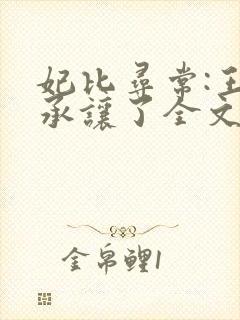 妃比尋常:王
承讓了全文
金帛鲤1